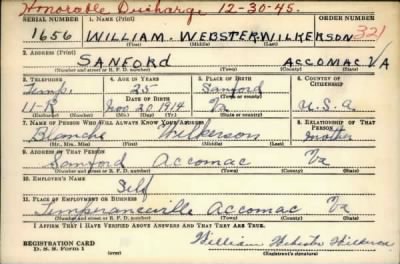 Honorable Discharge 12-30-45.
SERIAL NUMBER 1. NAME (Print) ORDER NUMBER
1656 WILLIAM. WEBSTER. WILKERSON 321
(First) (Middle) (Last)
2. ADDRESS (Print)
SANFORD ACCOMAC VA
(Number and street or R. F. D. number) (Town) (County) (State)
3. TELEPHONE 4. AGE IN YEARS 5. PLACE OF BIRTH 6. COUNTRY OF CITIZENSHIP
Temp. 25 Sanford
DATE OF BIRTH (Town or county)
11-R Nov. 20 1914 Va U.S.A.
(Exchange) (Number) (Mo.) (Day) (Yr.) (State or country)
7. NAME OF PERSON WHO WILL ALWAYS KNOW YOUR ADDRESS 8. RELATIONSHIP OF THAT PERSON
Blanche Wilkerson Mother
(Mr., Mrs., Miss) (First) (Middle) (Last)
9. ADDRESS OF THAT PERSON
Sanford Accomac Va
(Number and street or R. F. D. number) (Town) (County) (State)
10. EMPLOYER'S NAME
Self
11. PLACE OF EMPLOYMENT OR BUSINESS
Temperanceville Accomac Va
(Number and street or R. F. D. number) (Town) (County) (State)
I AFFIRM THAT I HAVE VERIFIED ABOVE ANSWERS AND THAT THEY ARE TRUE.
REGISTRATION CARD William Webster Wilkerson
D. S. S. Form 1 (over) (Registrant's signature)